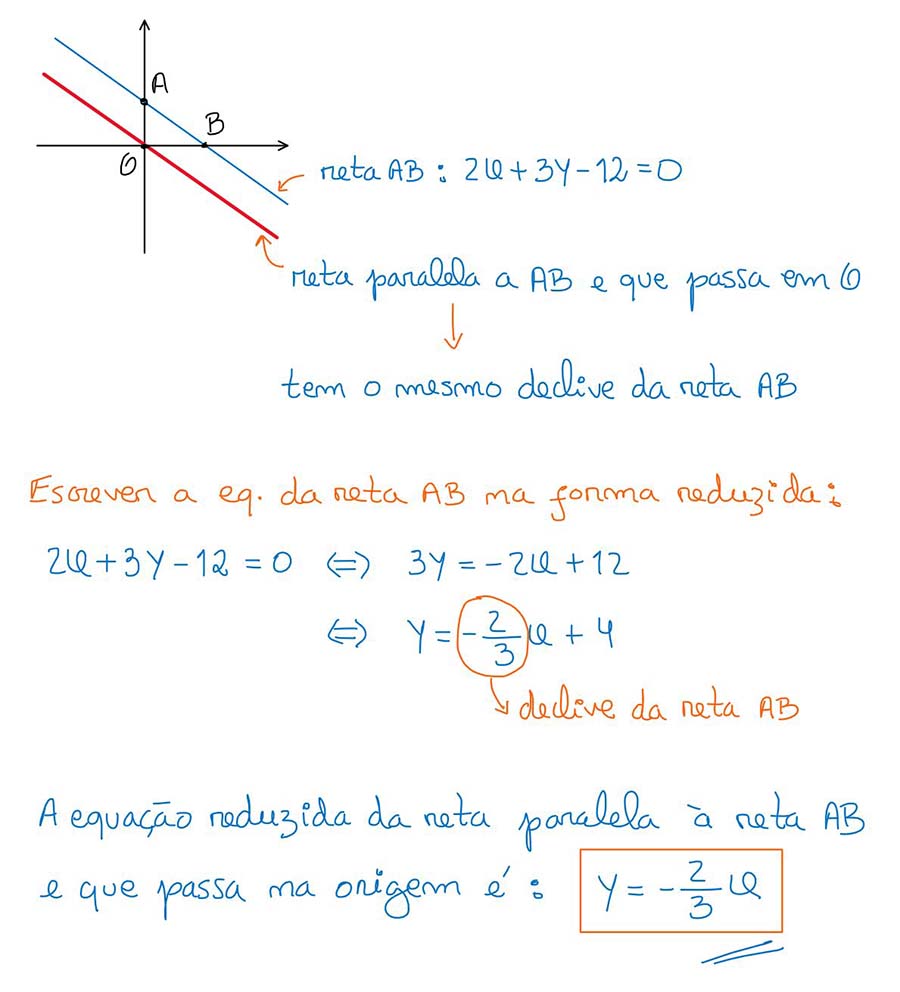 A
B
O
reta AB : 2x + 3y - 12 = 0
reta paralela a AB e que passa em O
↓
tem o mesmo declive da reta AB
Escrever a eq. da reta AB na forma reduzida:
2x + 3y - 12 = 0 ⇔ 3y = -2x + 12
⇔ y = -2/3 x + 4
declive da reta AB
A equação reduzida da reta paralela à reta AB
e que passa na origem é : y = -2/3 x